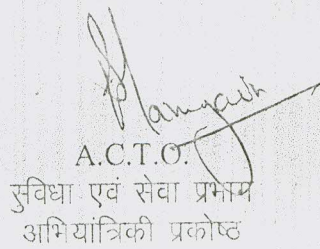 A.C.T.O.
सुविधा एवं सेवा प्रभाग
अभियांत्रिकी प्रकोष्ठ